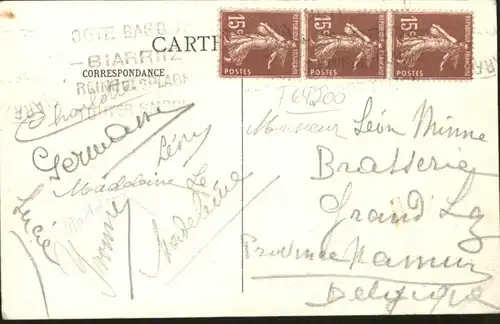 COTE BASQ
BIARRITZ
REINE DES PLAGES
CARTE
CORRESPONDANCE
15c
POSTES
15c
POSTES
15c
POSTES
T64200
Charlotte
Germaine
Léony
Madeleine Le
Madeleine
Lucie
Yvonne
Monsieur Léon Minne
Brasserie
Grand' Lez
Province Namur
Belgique